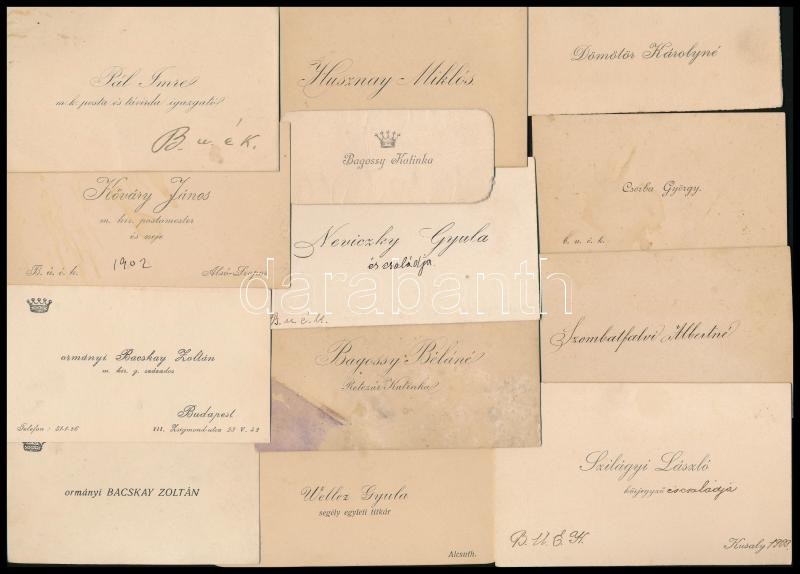 Pál Imre
m. k. posta és távirda igazgató
B. u. é. k.
Kőváry János
m. kir. postamester
és neje
B. ú. é. k.
1902
ormányi Bacskay Zoltán
m. kir. g. százados
Budapest
Telefon: 51-1-26
III. Zsigmond-utca 53 V. 42
ormányi BACSKAY ZOLTÁN
Husznay Miklós
Bagossy Katinka
Neviczky Gyula
és családja
B u é k.
darabanth
Bagossy Béláné
Retezár Katinka
Wellez Gyula
segély egyleti titkár
Alcsuth.
Dömötör Károlyné
Csorba György.
b. u. é. k.
Szombatfalvi Albertné
Szilágyi László
körjegyző és családja
B. U. É. K.
Kusaly 1900.